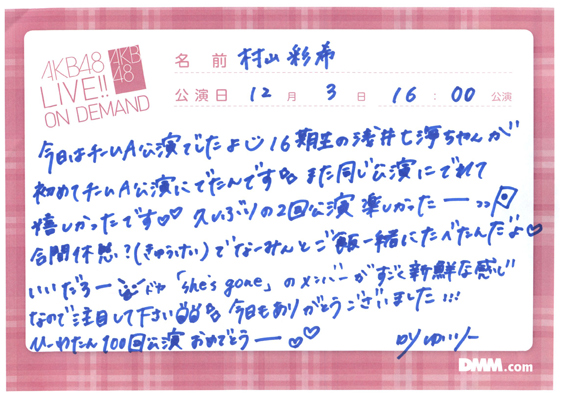 AKB48
LIVE!!
ON DEMAND
AKB
48
名 前 村山 彩希
公演日 12 月 3 日 16 : 00 公演
今日はチームA公演でしたよ 16期生の浅井七海ちゃんが
初めてチームA公演にでたんです また同じ公演にでれて
嬉しかったです♡♡ 久しぶりの2回公演 楽しかったー
合間休憩?(きゅうけい)でなーみんとご飯一緒にたべたんだよ♡
いいだろー ドヤ 「she's gone」のメンバーがすごく新鮮な感じ
なので注目して下さい 今日もありがとうございました!!!
ひーわたん100回公演 おめでとうー♡♡
by ゆいりー
DMM.com